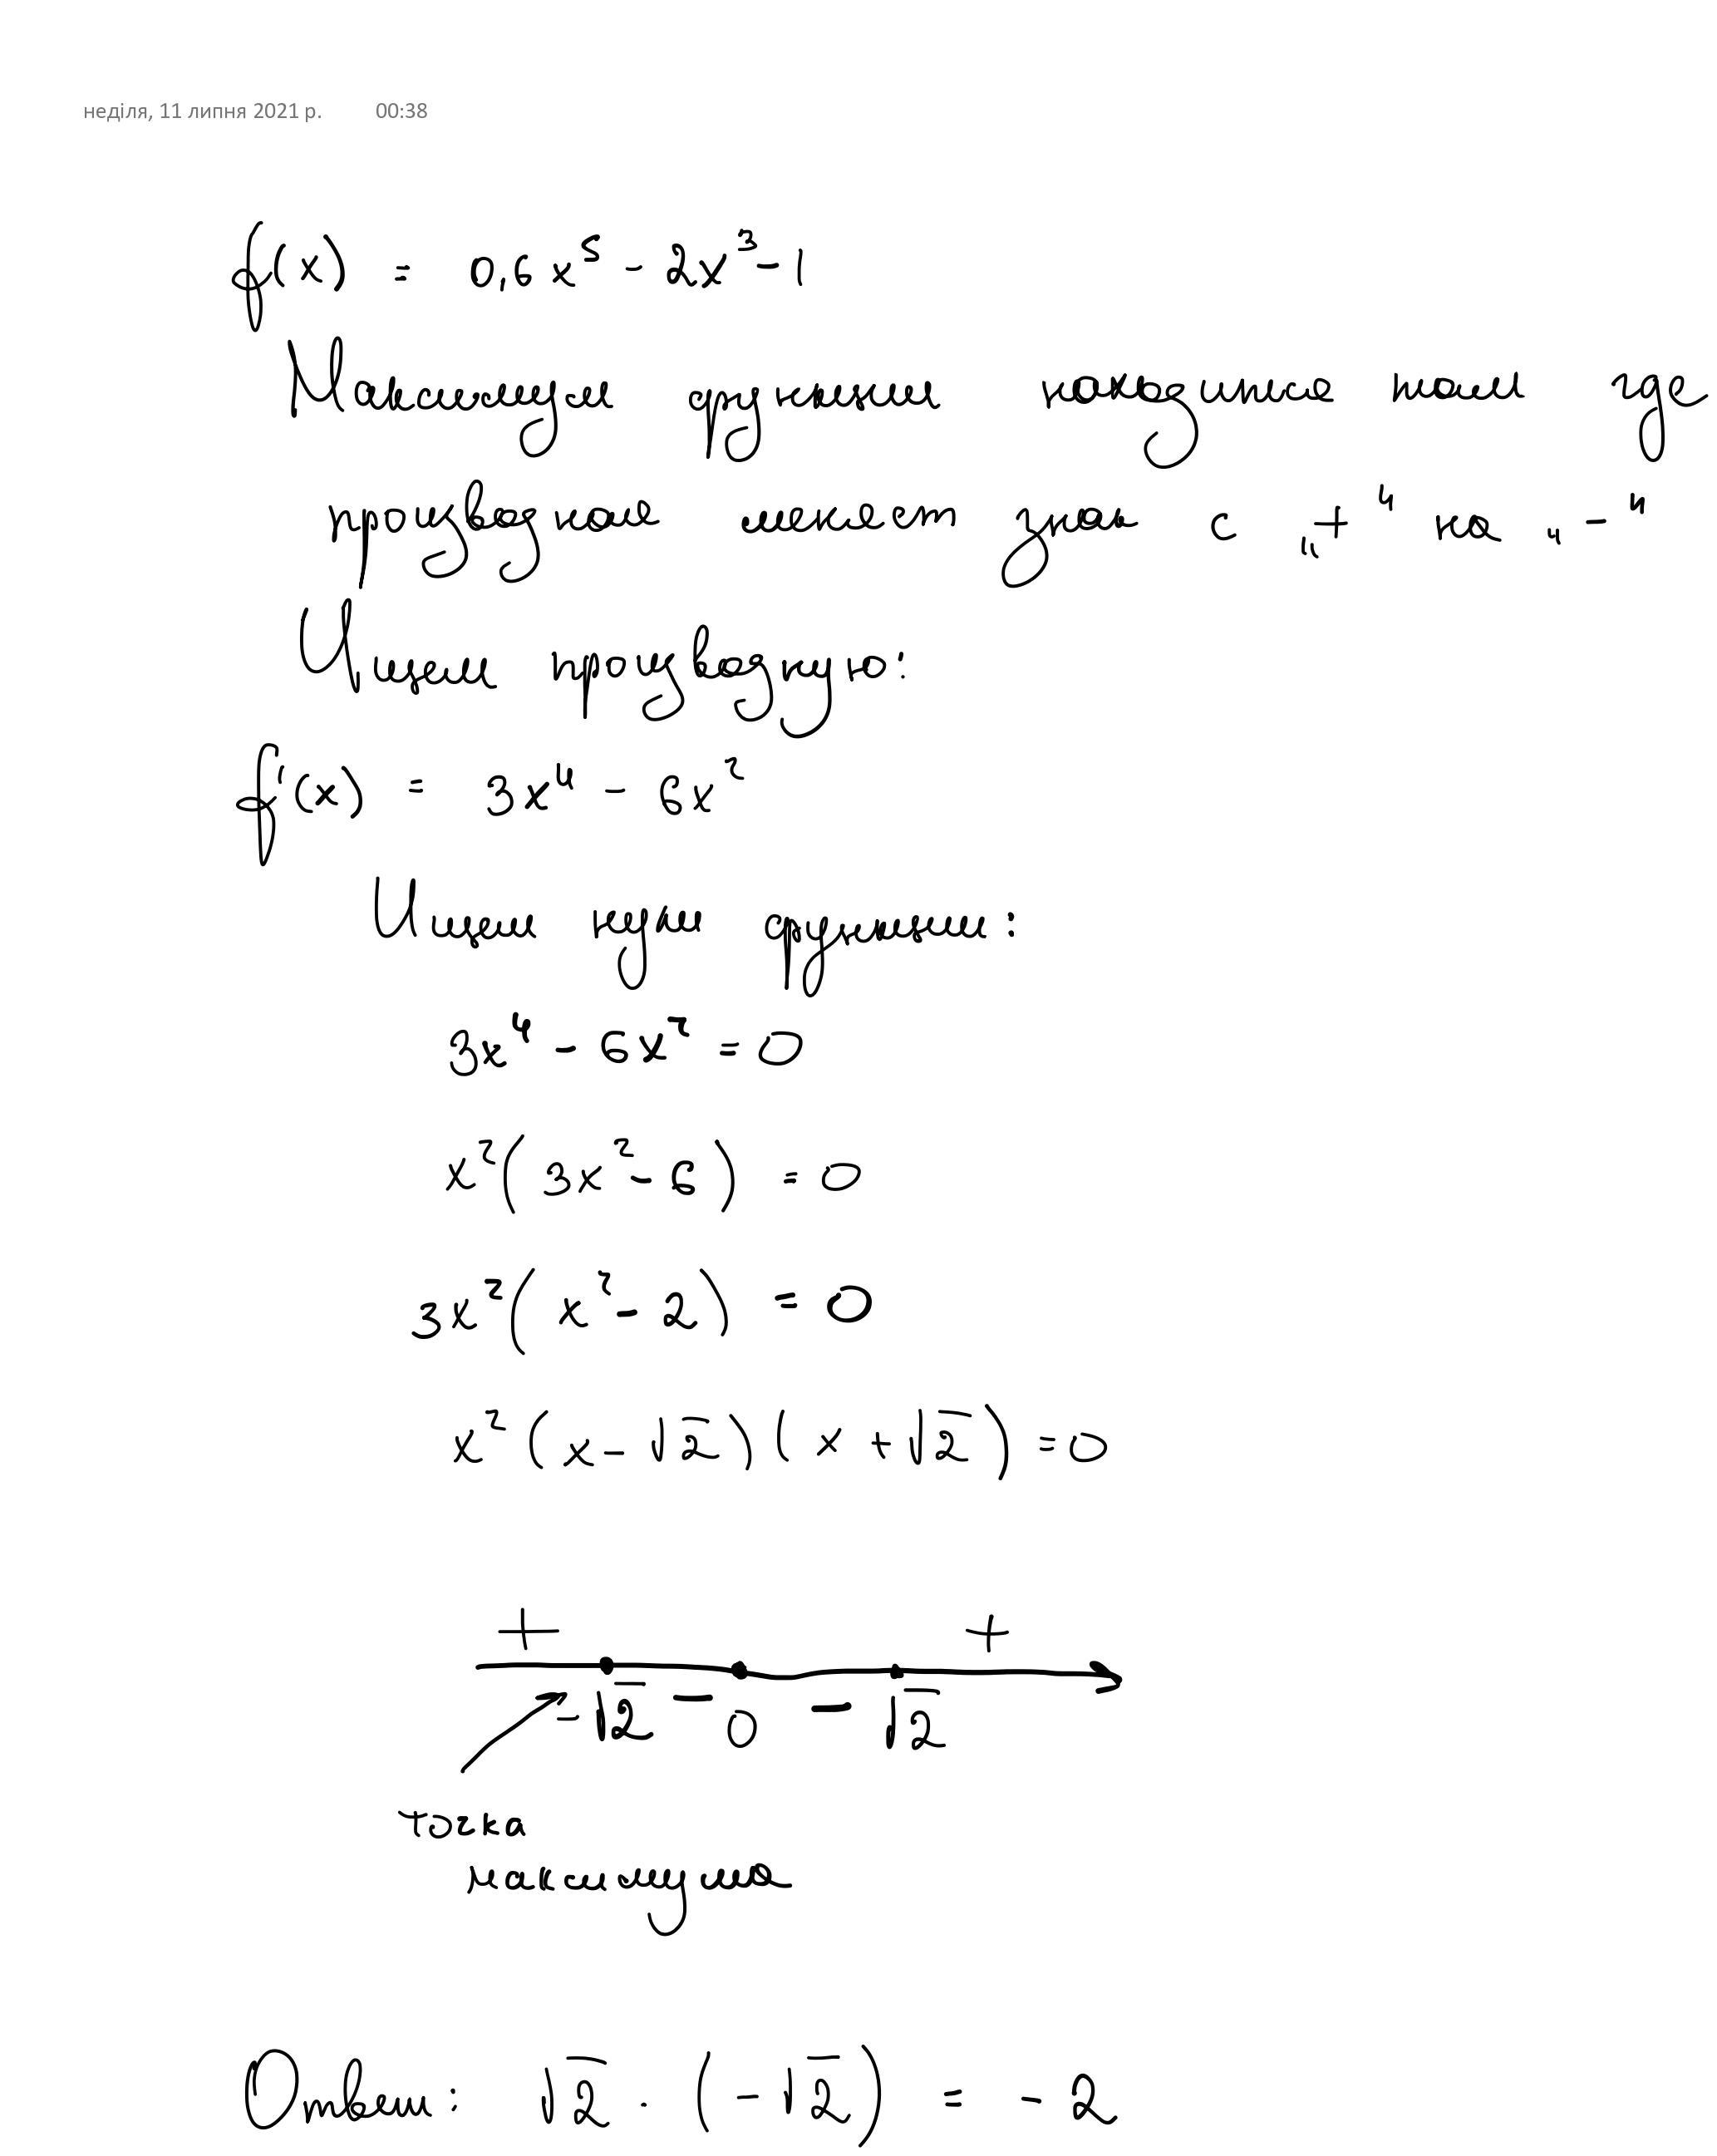 неділя, 11 липня 2021 р. 00:38
f(x) = 0,6x⁵ - 2x³ - 1
Максимум функции находится там где
производная меняет знак с „+“ на „-“
Ищем производную:
f'(x) = 3x⁴ - 6x²
Ищем нули функции:
3x⁴ - 6x² = 0
x²(3x² - 6) = 0
3x²(x² - 2) = 0
x²(x - √2)(x + √2) = 0
+ +
-√2 - 0 - √2
точка
максимума
Ответ: √2 · (-√2) = -2